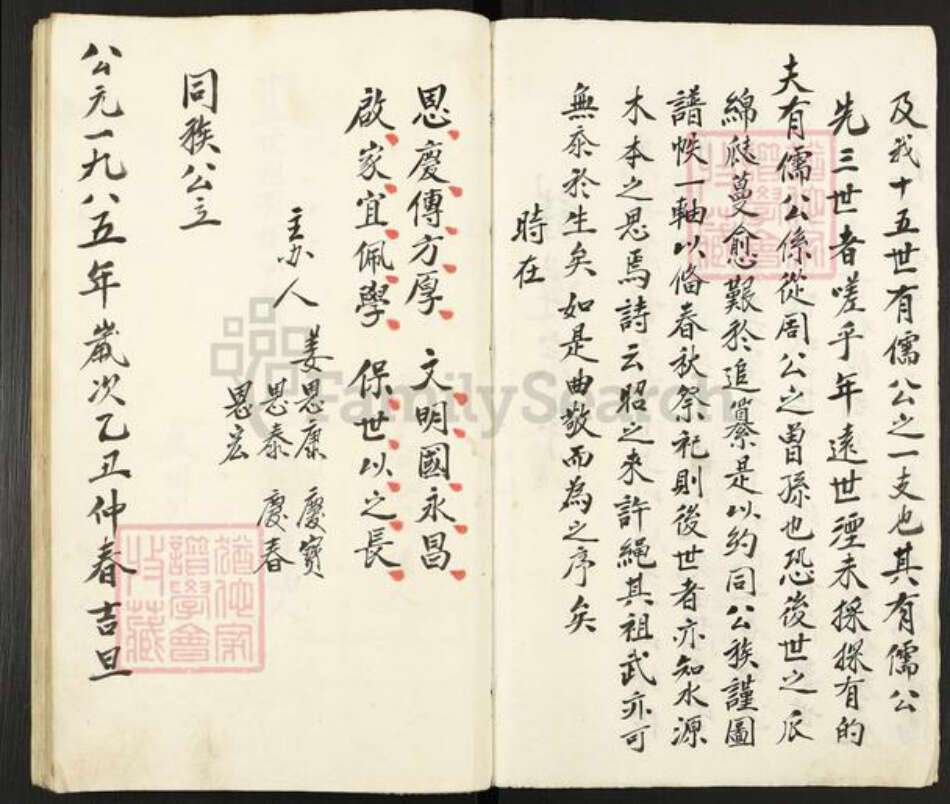 及我十五世有儒公之一支也其有儒公
先三世者嗟乎年遠世湮未採採有的
夫有儒公係從周公之曾孫也恐後世之瓜
綿瓞蔓愈艱於追纂是以約同公族謹圖
譜帙一軸以俻春秋祭祀則後世者亦知水源
木本之思焉詩云昭之來許繩其祖武亦可
無忝於生矣如是曲敬而為之序矣
時在
恩慶傳方厚 文明國永昌
啟家宜佩學 保世以之長
主办人 姜恩康 慶寶
恩泰 慶春
恩宏
同族公立
公元一九八五年嵗次乙丑仲春吉旦
譜學會
收藏
FamilySearch